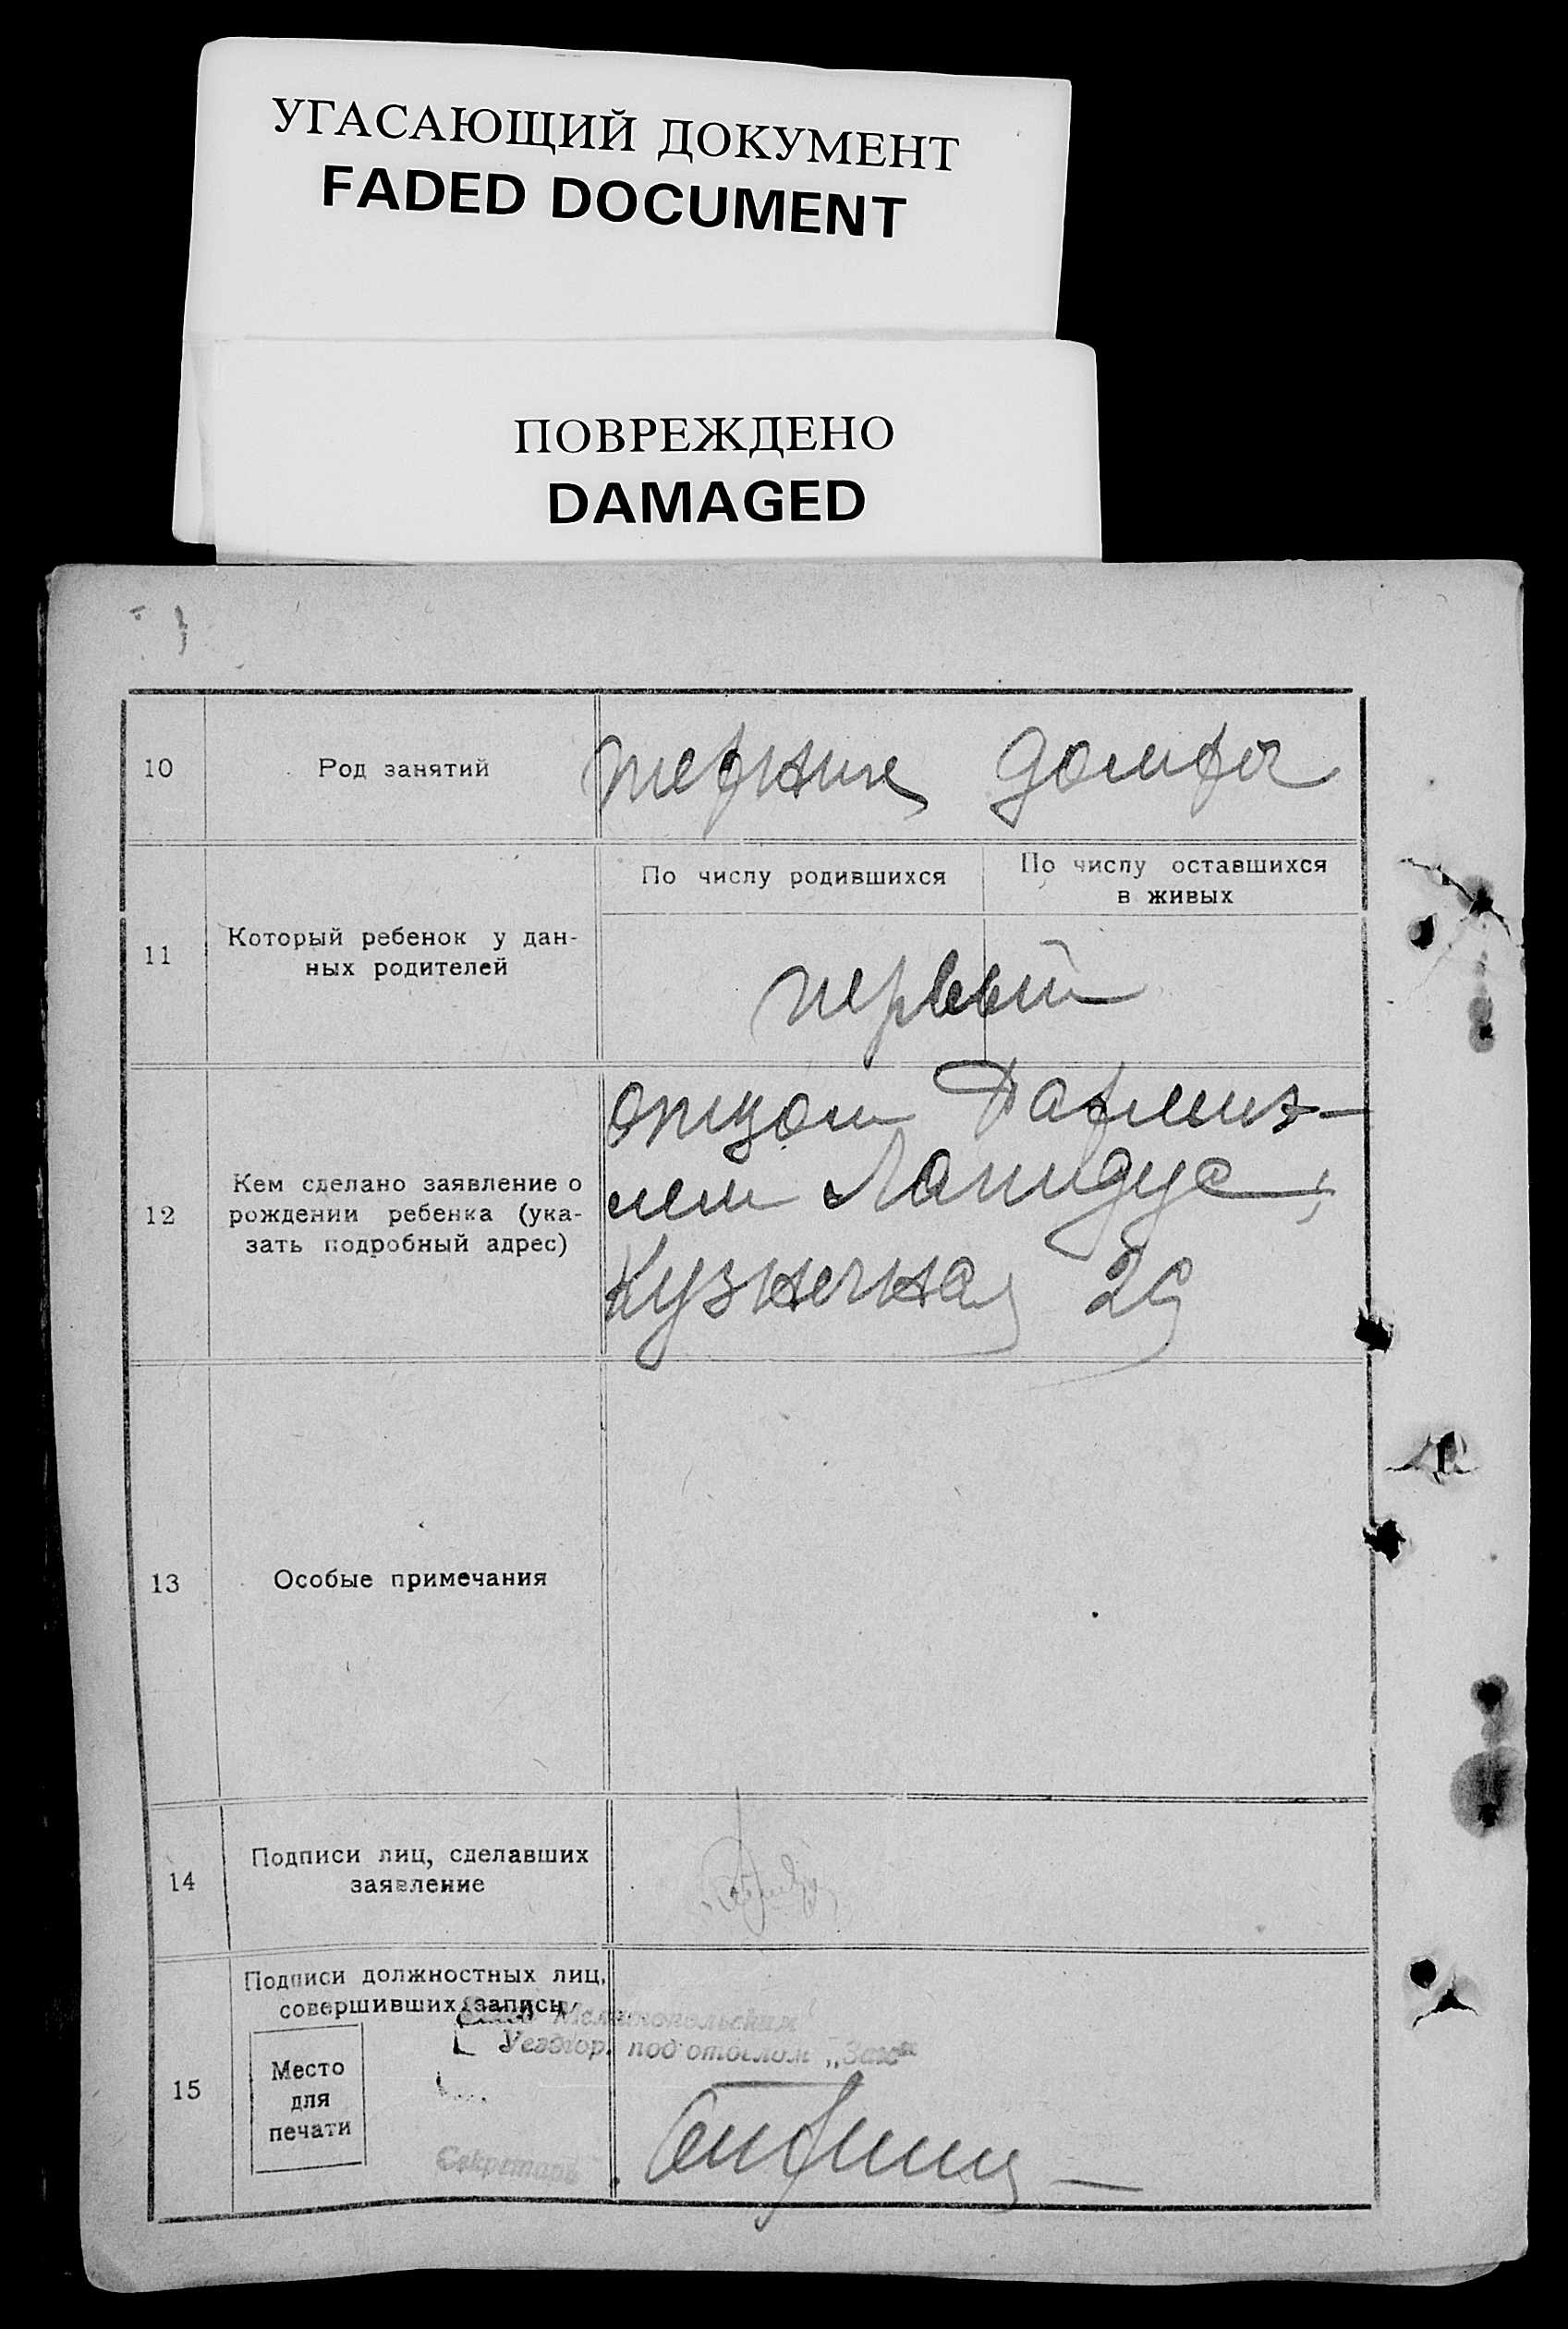 УГАСАЮЩИЙ ДОКУМЕНТ
FADED DOCUMENT
ПОВРЕЖДЕНО
DAMAGED
10
Род занятий
11
Который ребенок у дан-
ных родителей
По числу родившихся
По числу оставшихся
в живых
первый
12
Кем сделано заявление о
рождении ребенка (ука-
зать подробный адрес)
отцом
Лапидус,
Кузнечная 29
13
Особые примечания
14
Подписи лиц, сделавших
заявление
15
Подписи должностных лиц,
совершивших запись
Мелитопольским
Уездгор. подотделом „Загс"
Место
для
печати
Секретарь